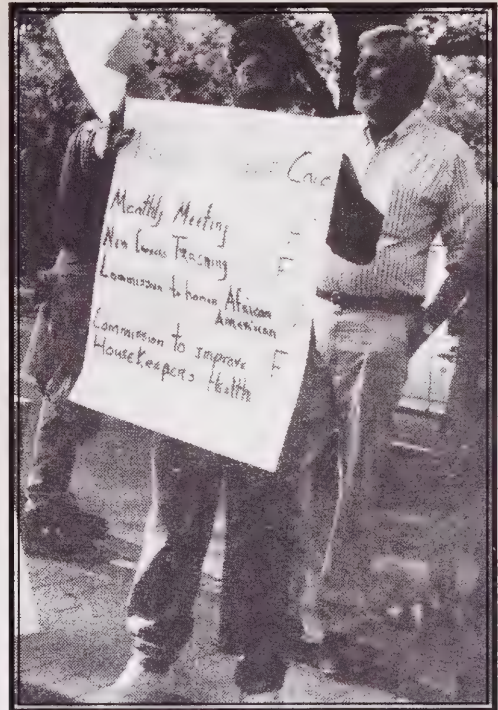 Monthly Meeting
New Training F
Commission to honor African
American
Commission to Improve F
HouseKeepers Health